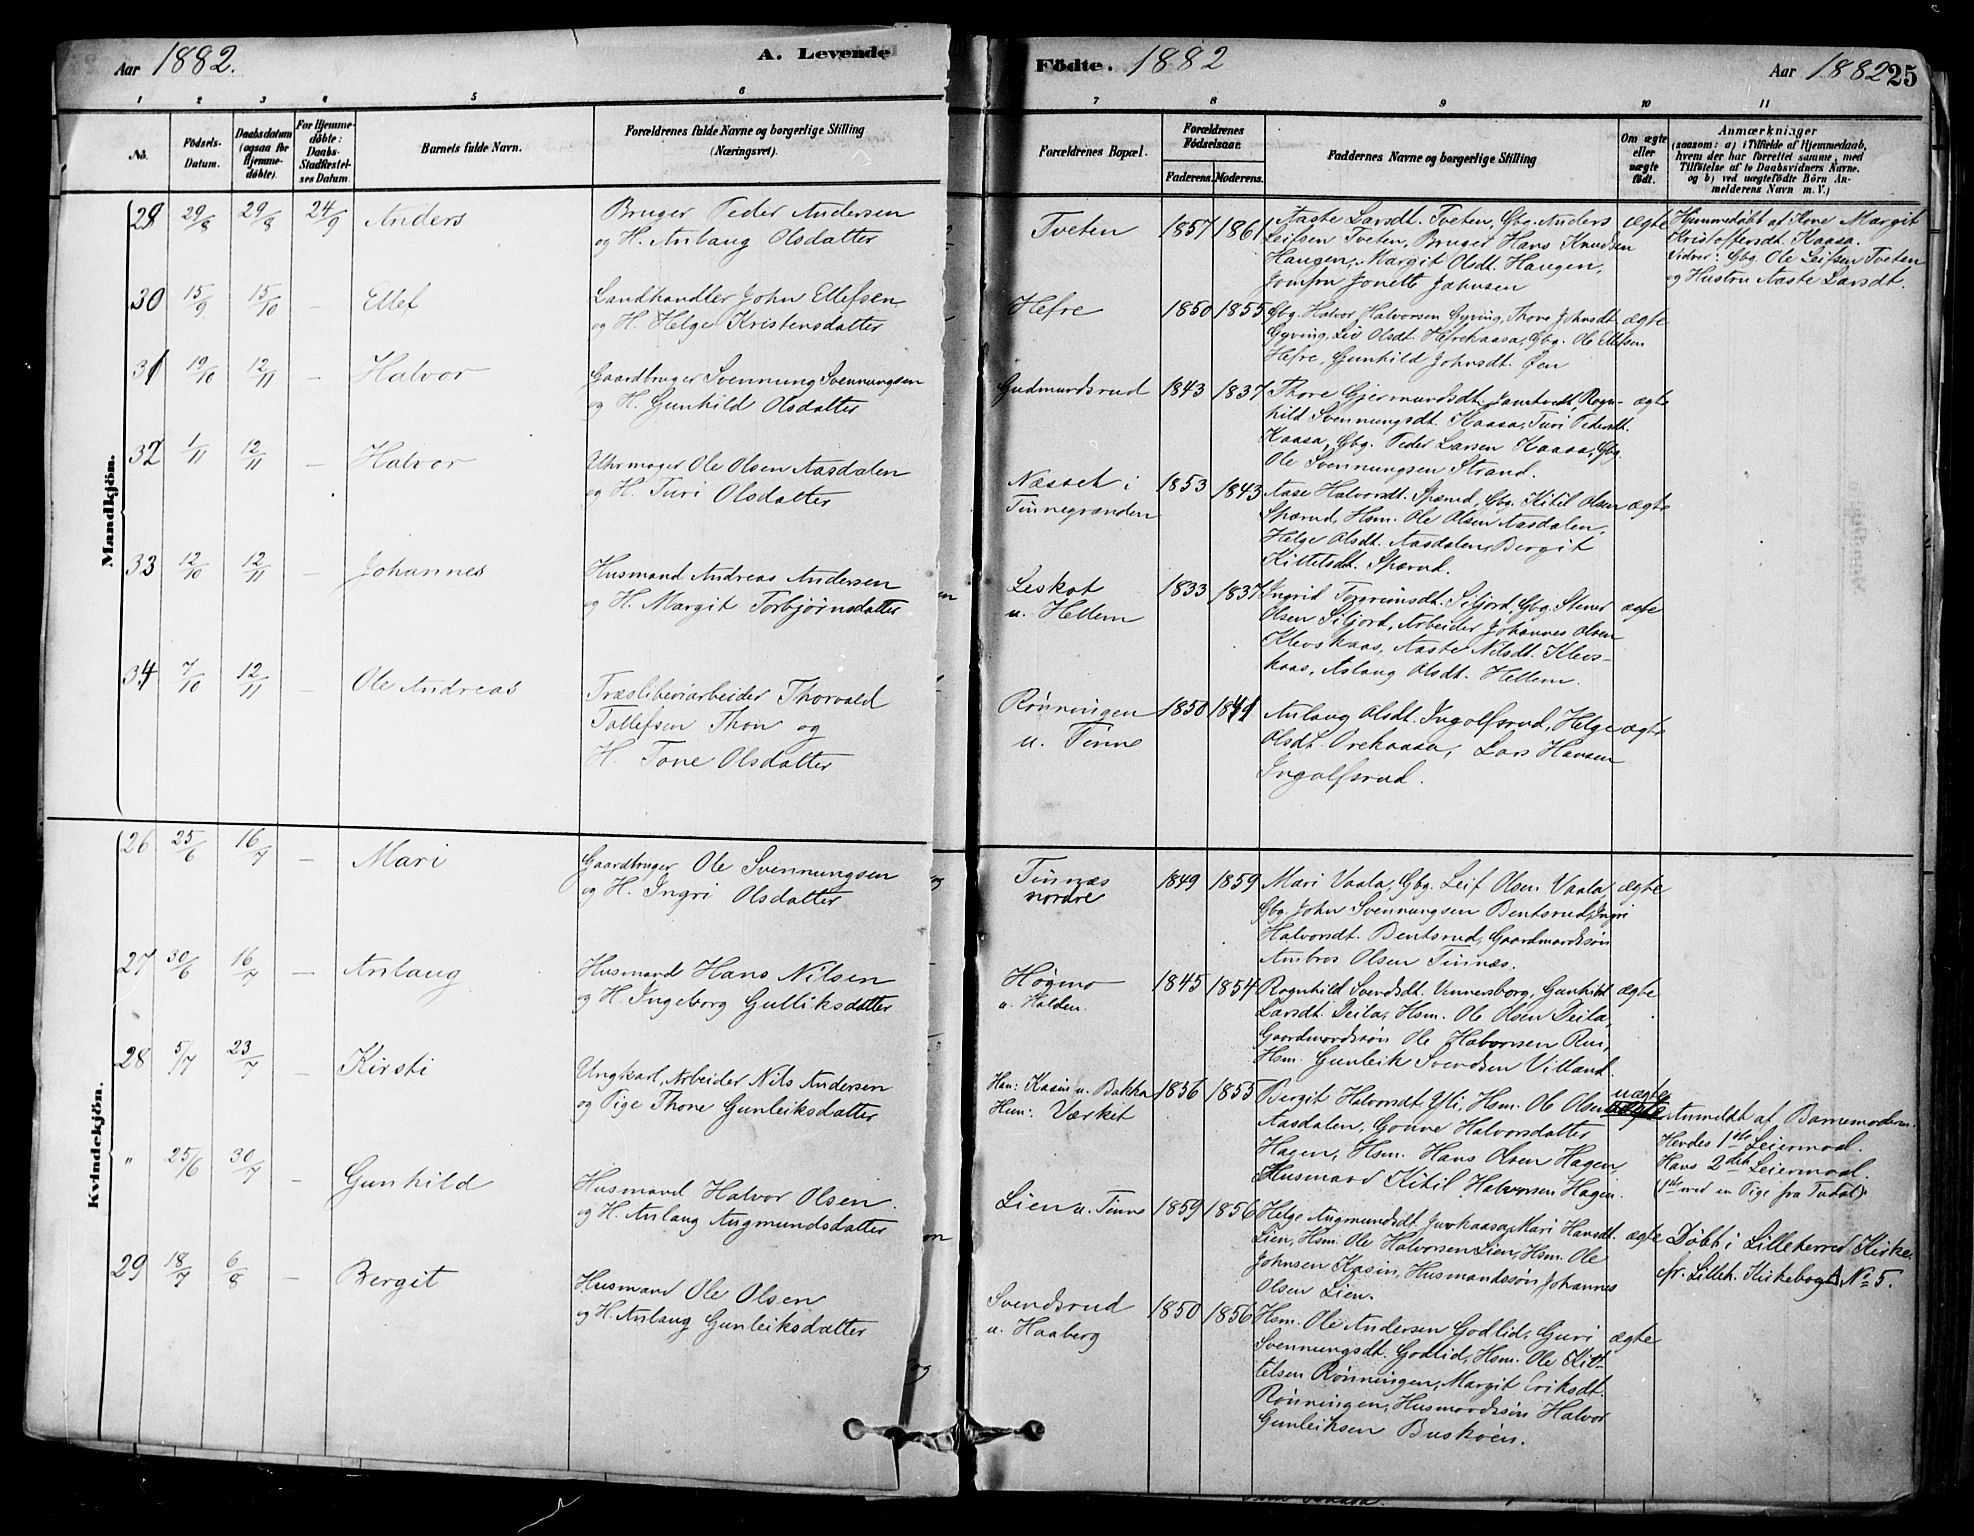 Aar 1882.
A. Levende
Födte. 1882
Aar 1882
25
1 2 3 4 5 6 7 8 9 10 11
No.
Födsels-
Datum.
Daabsdatum
(ogsaa for
Hjemme-
döbte).
For Hjemme-
döbte:
Daabs-
Stadfæstel-
ses Datum.
Barnets fulde Navn.
Forældrenes fulde Navne og borgerlige Stilling
(Næringsvei).
Forældrenes Bopæl.
Forældrenes
Födselsaar.
Faderens. Moderens.
Faddernes Navne og borgerlige Stilling
Om ægte
eller
uægte
födt.
Anmærkninger
(saasom: a) i Tilfælde af Hjemmedaab,
hvem der har forrettet samme, med
Tilföielse af to Daabsvidners Navne.
og b) ved uægtefödte Börn An-
melderens Navn m. V.)
Mandkjön.
29 29/8 29/8 24/9 Anders
Bruger Peder Andersen
og H. Anlaug Olsdatter
Tveten 1857 1861
Aaste Larsdt. Tveten, Gbg. Anders
Leifsen Tveten, Bruger Hans Knudsen
Haugen, Margit Olsdt. Haugen,
Jomfru Jonette Jahnsen
ægte
Hjemmedøbt af Kone Margit
Kristoffersdt. Kaasa.
Vidner: Gbg. Ole Leifsen Tveten
og Hustru Aaste Larsdt.
30 15/9 15/10 – Ellef
Landhandler John Ellefsen
og H. Helge Kristensdatter
Hefre 1850 1855
Gbg. Halvor Halvorsen Gyving, Thone Johnsdt.
Gyving, Liv Olsdt. Hefrekaasa, Gbg. Ole Ellefsen
Hefre, Gunhild Johnsdt. Øen
ægte
31 19/10 12/11 – Halvor
Gaardbruger Svennung Svennungsen
og H. Gunhild Olsdatter
Gudmundsrud 1843 1837
Thore Gjermundsdt. Jamtvedt, Rogn-
hild Svennungsdt. Kaasa, Turi Pedersdt.
Kaasa, Gbg. Peder Larsen Kaasa, Gbg.
Ole Svennungsen Strand.
ægte
32 1/11 12/11 – Halvor
Uhrmager Ole Olsen Aasdalen
og H. Turi Olsdatter
Næsset i
Tinnegranden
1853 1843
Aase Halvorsdt. Sparud, Gbg. Kitil Olsen
Sparud, Hsm. Ole Olsen Aasdalen,
Helge Olsdt. Aasdalen, Bergit
Kittelsdt. Sparud.
ægte
33 12/10 12/11 – Johannes
Husmand Andreas Andersen
og H. Margit Torbjørnsdatter
Leskot
u. Hellem
1833 1837
Ingrid Torreimsdt. Siljord, Gbg. Stener
Olsen Siljord, Arbeider Johannes Olsen
Klevskaas, Aaste Nilsdt. Klevs-
kaas, Aslaug Olsdt. Hellem.
ægte
34 7/10 12/11 – Ole Andreas
Træsliberiarbeider Thorvald
Tollefsen Thon og
H. Tone Olsdatter
Rønningen
u. Tinne
1850 1841
Anlaug Olsdt. Ingolfsrud, Helge
Olsdt. Orekaasa, Lars Hansen
Ingolfsrud.
ægte
Kvindekjön.
26 25/6 16/7 – Mari
Gaardbruger Ole Svennungsen
og H. Ingri Olsdatter
Tinnæs
nordre
1849 1859
Mari Vaala, Gbg. Leif Olsen Vaala,
Gbg. John Svennungsen Bentsrud, Ingri
Halvorsdt. Bentsrud, Gaardmandssøn
Ambros Olsen Tinnæs.
ægte
27 30/6 16/7 – Anlaug
Husmand Hans Nilsen
og H. Ingeborg Gulliksdatter
Høgmo
u. Halden.
1845 1854
Rognhild Svendsdt. Vennersborg, Gunhild
Larsdt. Deila, Hsm. Ole Olsen Deila,
Gaardmandssøn Ole Halvorsen Rui,
Hsm. Gunleik Svendsen Villand.
ægte
28 5/7 23/7 – Kirsti
Ungkarl, Arbeider Nils Andersen
og Pige Thone Gunleiksdatter
Han: Kasin u. Bakka
Hun: Værkit
1856 1855
Bergit Halvorsdt. Yli, Hsm. Ole Olsen
Aasdalen, Gonve Halvorsdatter
Hagen, Hsm. Hans Olsen Hagen,
Husmand Kitil Halvorsen Hagen.
uægte
Anmeldt af Barnemoderen.
Hendes 1ste Leiermaal.
Hans 2det Leiermaal.
(1ste med en Pige fra Tudal).
" 25/6 30/7 – Gunhild
Husmand Halvor Olsen
og H. Anlaug Augmundsdatter
Lien u. Tinne 1859 1856
Helge Augmundsdt. Juvkaasa, Mari Hansdt.
Lien, Hsm. Ole Halvorsen Lien, Hsm. Ole
Johnsen Kasin, Husmandssøn Johannes
Olsen Lien.
ægte
Døbt i Lilleherred Kirke
cfr. Lilleh. Kirkebog A, No 5.
29 18/7 6/8 – Bergit
Husmand Ole Olsen
og H. Anlaug Gunleiksdatter
Svendsrud
u. Haaberg
1850 1856
Hsm. Ole Andersen Godlid, Guri
Svennungsdt. Godlid, Hsm. Ole Kit-
telsen Rønningen, Margit Eriksdt.
Rønningen, Husmandssøn Halvor
Gunleiksen Buskøen.
ægte